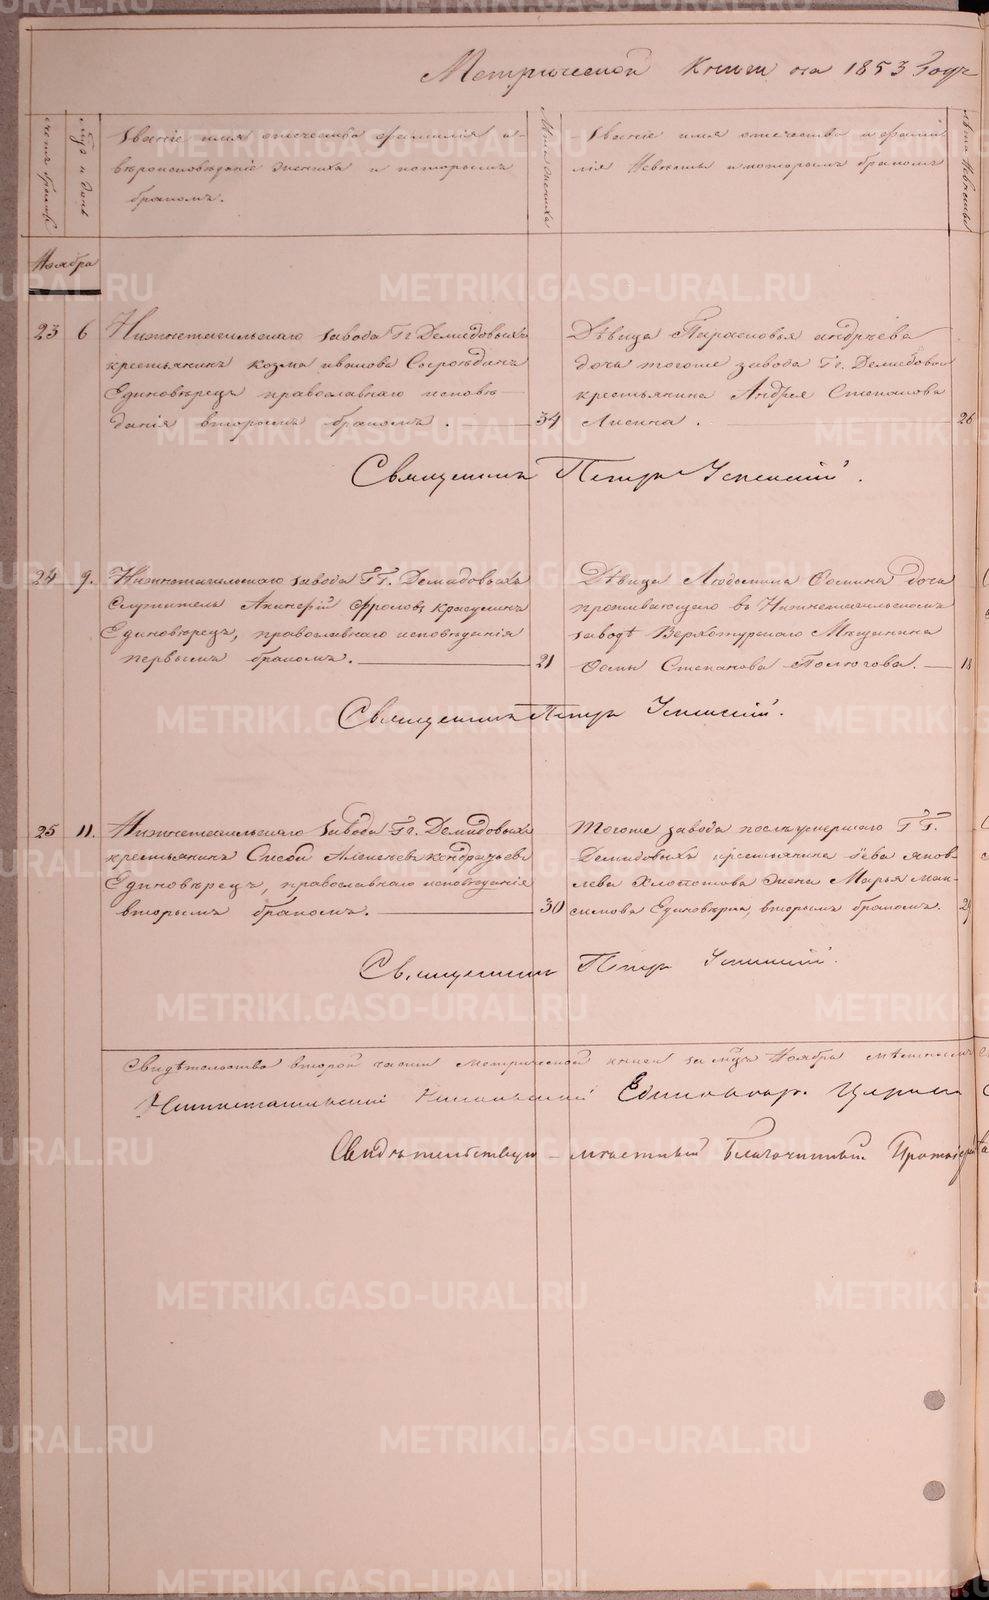 Метрической Книги на 1853 Годъ
счетъ браковъ
мѣсяцъ и день
Званіе имя отечество фамилія и
вѣроисповѣданіе Жениха и которымъ
бракомъ.
Лѣта Жениха
Званіе имя отечество и фамил
лія Невѣсты и которымъ бракомъ
Лѣта Невѣсты
Ноября
23 6 Нижнетагильскаго завода Гг Демидовыхъ
крестьянинъ козма ивановъ
Единовѣрецъ православнаго исповѣ
данія вторымъ бракомъ. 34
Дѣвица Парасковья андрѣева
дочь тогоже завода Гг. Демидовы
крестьянина Андрея Степанова
Лисина. 26
Священникъ Петръ Успенскій.
24 9. Нижнетагильскаго завода ГГ. Демидовыхъ
Служитель Акинфій Фроловъ Красулинъ
Единовѣрецъ, православнаго исповѣданія
первымъ бракомъ. 21
Дѣвица Людмила Фомина дочь
проживающаго въ Нижнетагильскомъ
заводѣ Верхотурскаго Мѣщанина
Фомы Степанова Полюгова. 18
Священникъ Петръ Успенскій.
25 11. Нижнетагильскаго Завода Гг. Демидовыхъ
крестьянинъ Алексѣевъ кондратьевъ
Единовѣрецъ, православнаго исповѣданія
вторымъ бракомъ. 30
Тогоже завода послѣ умершаго ГГ
Демидовыхъ крестьянина яков
лева Хлопотова Жена Марья Мак
симова Единовѣрка, вторымъ бракомъ. 29
Священникъ Петръ Успенскій.
Свидѣтельство второй части метрической книги за мѣцъ Ноябрь
Нижнетагильской Никольской Единовѣр. Церкви
Свидѣтельствую мѣстный Благочинный Протоіерей
METRIKI.GASO-URAL.RU